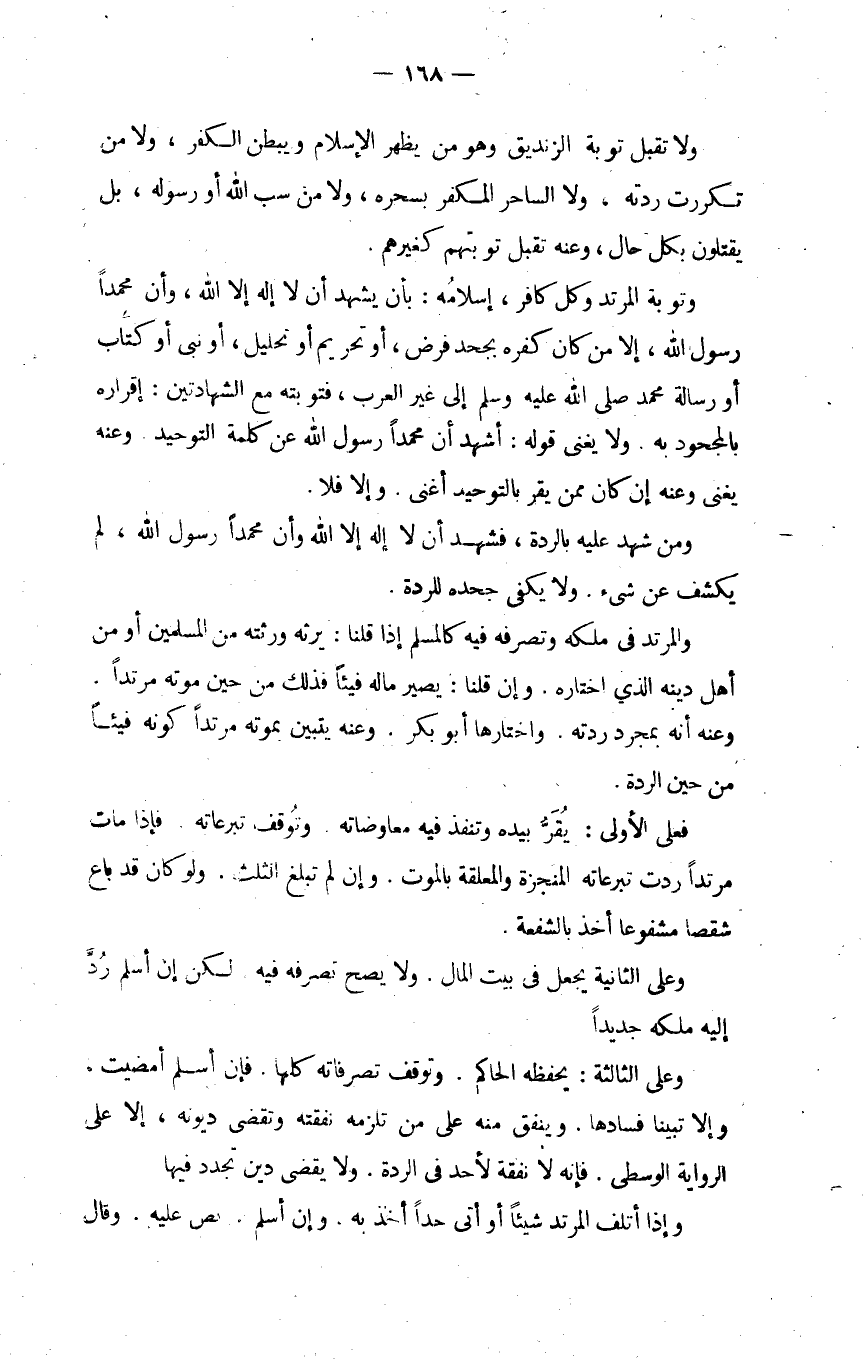 — ١٦٨ —
ولا تقبل توبة الزنديق وهو من يظهر الإسلام ويبطن الكفر ، ولا من
تكررت ردته ، ولا الساحر المكفر بسحره ، ولا من سب الله أو رسوله ، بل
يقتلون بكل حال ، وعنه تقبل توبتهم كغيرهم .
وتوبة المرتد وكل كافر ، إسلامُه : بأن يشهد أن لا إله إلا الله ، وأن محمداً
رسول الله ، إلا من كان كفره بجحد فرض ، أو تحريم أو تحليل ، أو نبى أو كتاب
أو رسالة محمد صلى الله عليه وسلم إلى غير العرب ، فتوبته مع الشهادتين : إقراره
بالمجحود به . ولا يغنى قوله : أشهد أن محمداً رسول الله عن كلمة التوحيد . وعنه
يغنى وعنه إن كان ممن يقر بالتوحيد أغنى . وإلا فلا .
ومن شهد عليه بالردة ، فشهد أن لا إله إلا الله وأن محمداً رسول الله ، لم
يكشف عن شىء . ولا يكفى جحده للردة .
والمرتد فى ملكه وتصرفه فيه كالمسلم إذا قلنا : يرثه ورثته من المسلمين أو من
أهل دينه الذي اختاره . وإن قلنا : يصير ماله فيئاً فذلك من حين موته مرتداً .
وعنه أنه بمجرد ردته . واختارها أبو بكر . وعنه يتبين بموته مرتداً كونه فيئاً
من حين الردة .
فعلى الأولى : يُقَرُّ بيده وتنفذ فيه معاوضاته . وتُوقف تبرعاته . فإذا مات
مرتداً ردت تبرعاته المنجزة والمعلقة بالموت . وإن لم تبلغ الثلث . ولو كان قد باع
شقصا مشفوعا أخذ بالشفعة .
وعلى الثانية يجعل فى بيت المال . ولا يصح تصرفه فيه . لكن إن أسلم رُدَّ
إليه ملكه جديداً
وعلى الثالثة : يحفظه الحاكم . وتوقف تصرفاته كلها . فإن أسلم أمضيت .
وإلا تبينا فسادها . وينفق منه على من تلزمه نفقته وتقضى ديونه ، إلا على
الرواية الوسطى . فإنه لا نفقة لأحد فى الردة . ولا يقضى دين تجدد فيها
وإذا أتلف المرتد شيئاً أو أتى حداً أخذ به . وإن أسلم . نص عليه . وقال